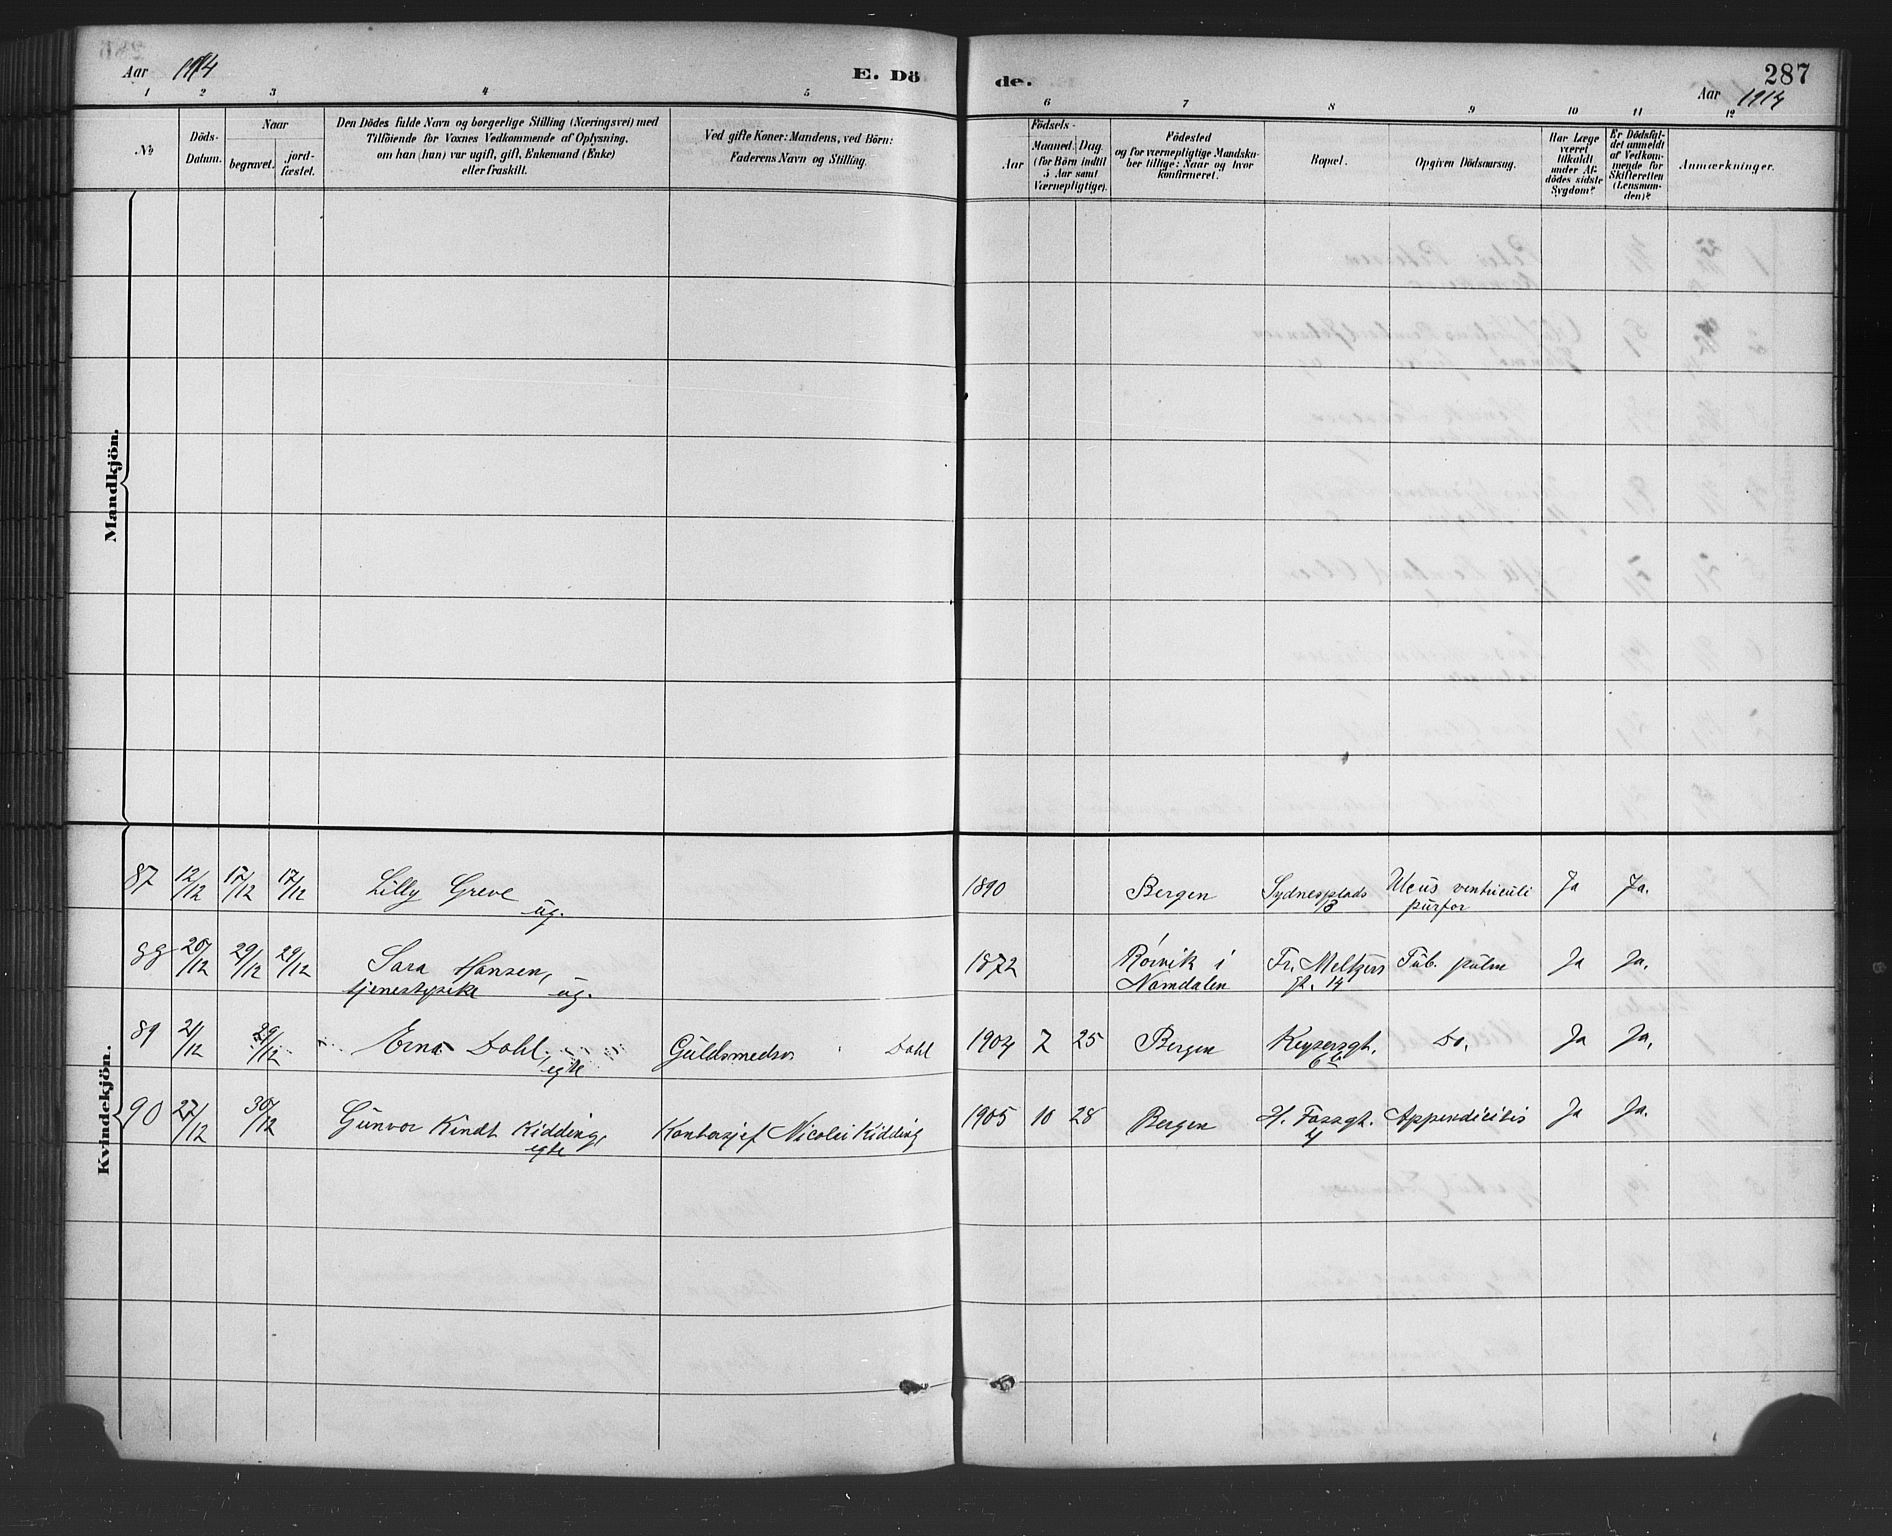 Aar 1914
E. Dö
de.
287
Aar 1914
1 2 3 4 5
6 7 8 9 10 11 12
No
Döds-
Datum.
Naar
begravet.
jord-
fæstet.
Den Dödes fulde Navn og borgerlige Stilling (Næringsvei) med
Tilföiende for Voxnes Vedkommende af Oplysning,
om han (hun) var ugift, gift, Enkemand (Enke)
eller fraskilt.
Ved gifte Koner: Mandens, ved Börn:
Faderens Navn og Stilling.
Födsels-
Aar
Maaned. Dag.
(for Börn indtil
5 Aar samt
Værnepligtige).
Födested
og for værnepligtige Mandska-
ber tillige: Naar og hvor
konfirmeret.
Bopæl.
Opgiven Dödsaarsag.
Har Læge
været
tilkaldt
under Af-
dödes sidste
Sygdom?
Er Dödsfal-
det anmeldt
af Vedkom-
mende for
Skifteretten
(Lensman-
den)?
Anmærkninger.
Mandkjön.
Kvindekjön.
87 12/12 17/12 17/12 Lilly Greve 1890 Bergen Sydnesplads Ulcus ventriculi Ja Ja.
ug.
88 20/12 29/12 29/12 Sara Hansen, 1872 Rörvik i Fr. Meltzers Tub. pulm Ja Ja.
tjenestepike ug. Namdalen gt. 14
89 21/12 29/12 Erna Dahl, Guldsmedsv Dahl 1904 7 25 Bergen Keysersgt. Do. Ja Ja,
egte
90 27/12 30/12 Gunvor Kindt Kidding, Kontorsjef Nicolai Kidding 1905 10 28 Bergen H. Fossgt. Appendicitis Ja Ja.
egte 4